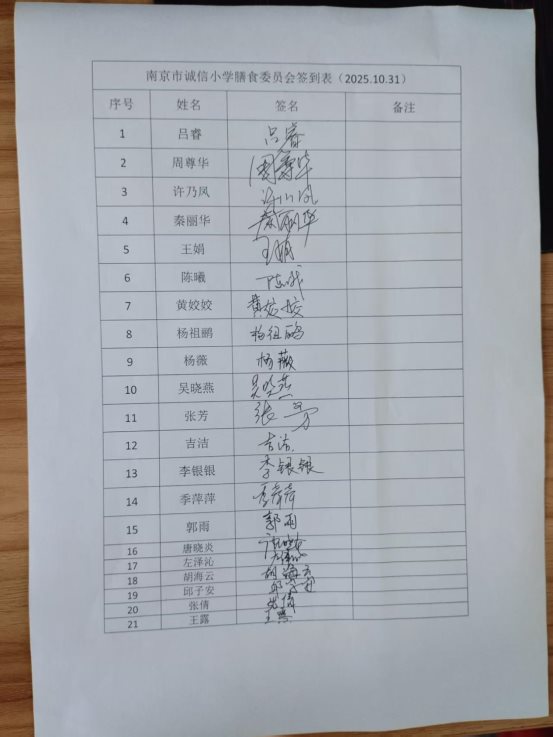 南京市诚信小学膳食委员会签到表（2025.10.31）
序号 姓名 签名 备注
1 吕睿 吕睿
2 周尊华 周尊华
3 许乃凤 许乃凤
4 秦丽华 秦丽华
5 王娟 王娟
6 陈曦 陈曦
7 黄姣姣 黄姣姣
8 杨祖鹏 杨祖鹏
9 杨薇 杨薇
10 吴晓燕 吴晓燕
11 张芳 张芳
12 吉洁 吉洁
13 李银银 李银银
14 季萍萍 季萍萍
15 郭雨 郭雨
16 唐晓炎
17 左泽沁
18 胡海云 胡海云
19 邱子安 邱子安
20 张倩 张倩
21 王露 王露